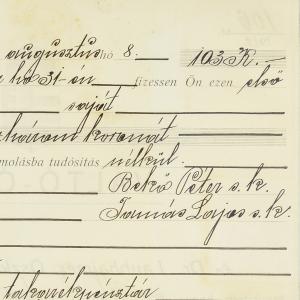 augusztus hó 8. 1033K.—
hó 31-én fizessen Ön ezen első
saját
három koronát
molásba tudósítás nélkül.
Bekő Péter s.k.
Tamás Lajos s.k.
takarékpénztár